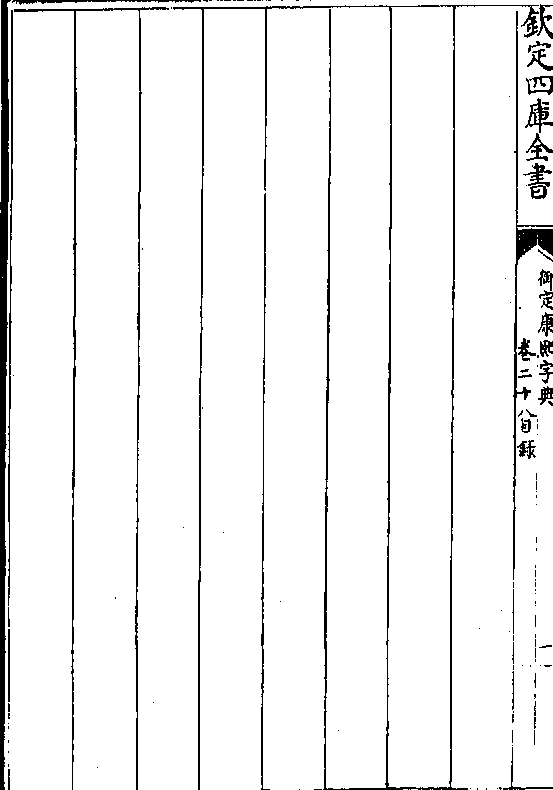 欽定四庫全書
御定康熙字典
卷二十八目錄
一